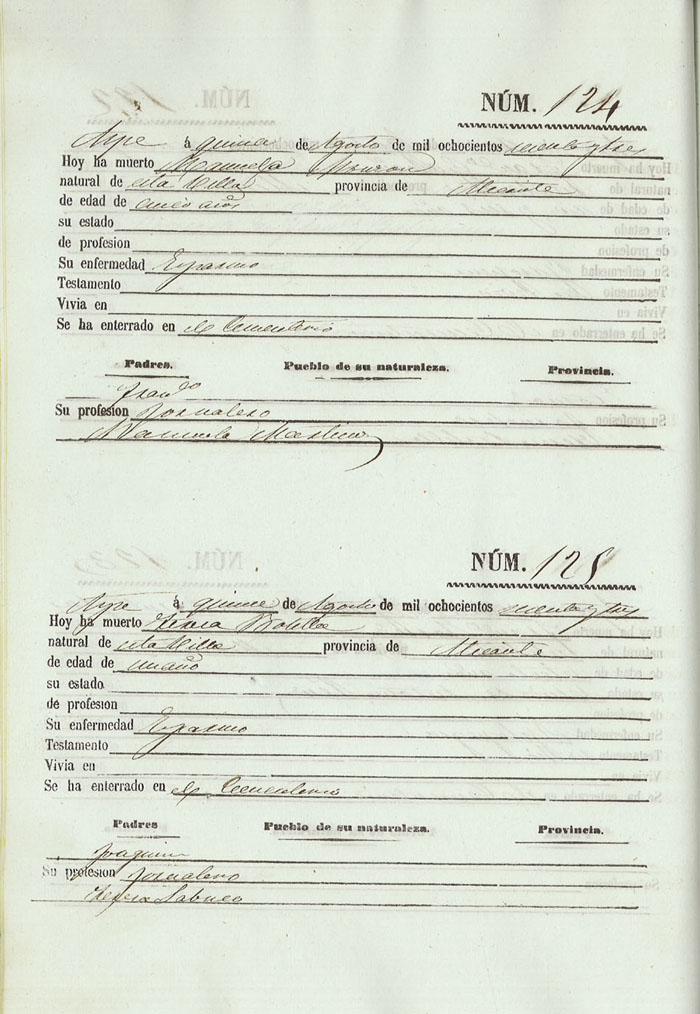 NÚM. 124
Aspe á quince de Agosto de mil ochocientos sesenta y tres
Hoy ha muerto Manuela
natural de esta Villa provincia de Alicante
de edad de cinco años
su estado
de profesion
Su enfermedad Espasmo
Testamento
Vivia en
Se ha enterrado en el Cementerio
Padres. Pueblo de su naturaleza. Provincia.
Franco
Su profesion Jornalero
Manuela Martinez
NÚM. 125
Aspe á quince de Agosto de mil ochocientos sesenta y tres
Hoy ha muerto Teresa Botella
natural de esta Villa provincia de Alicante
de edad de un año
su estado
de profesion
Su enfermedad Espasmo
Testamento
Vivia en
Se ha enterrado en el Cementerio
Padres Pueblo de su naturaleza. Provincia.
Joaquin
Su profesion Jornalero
Teresa Sabuco